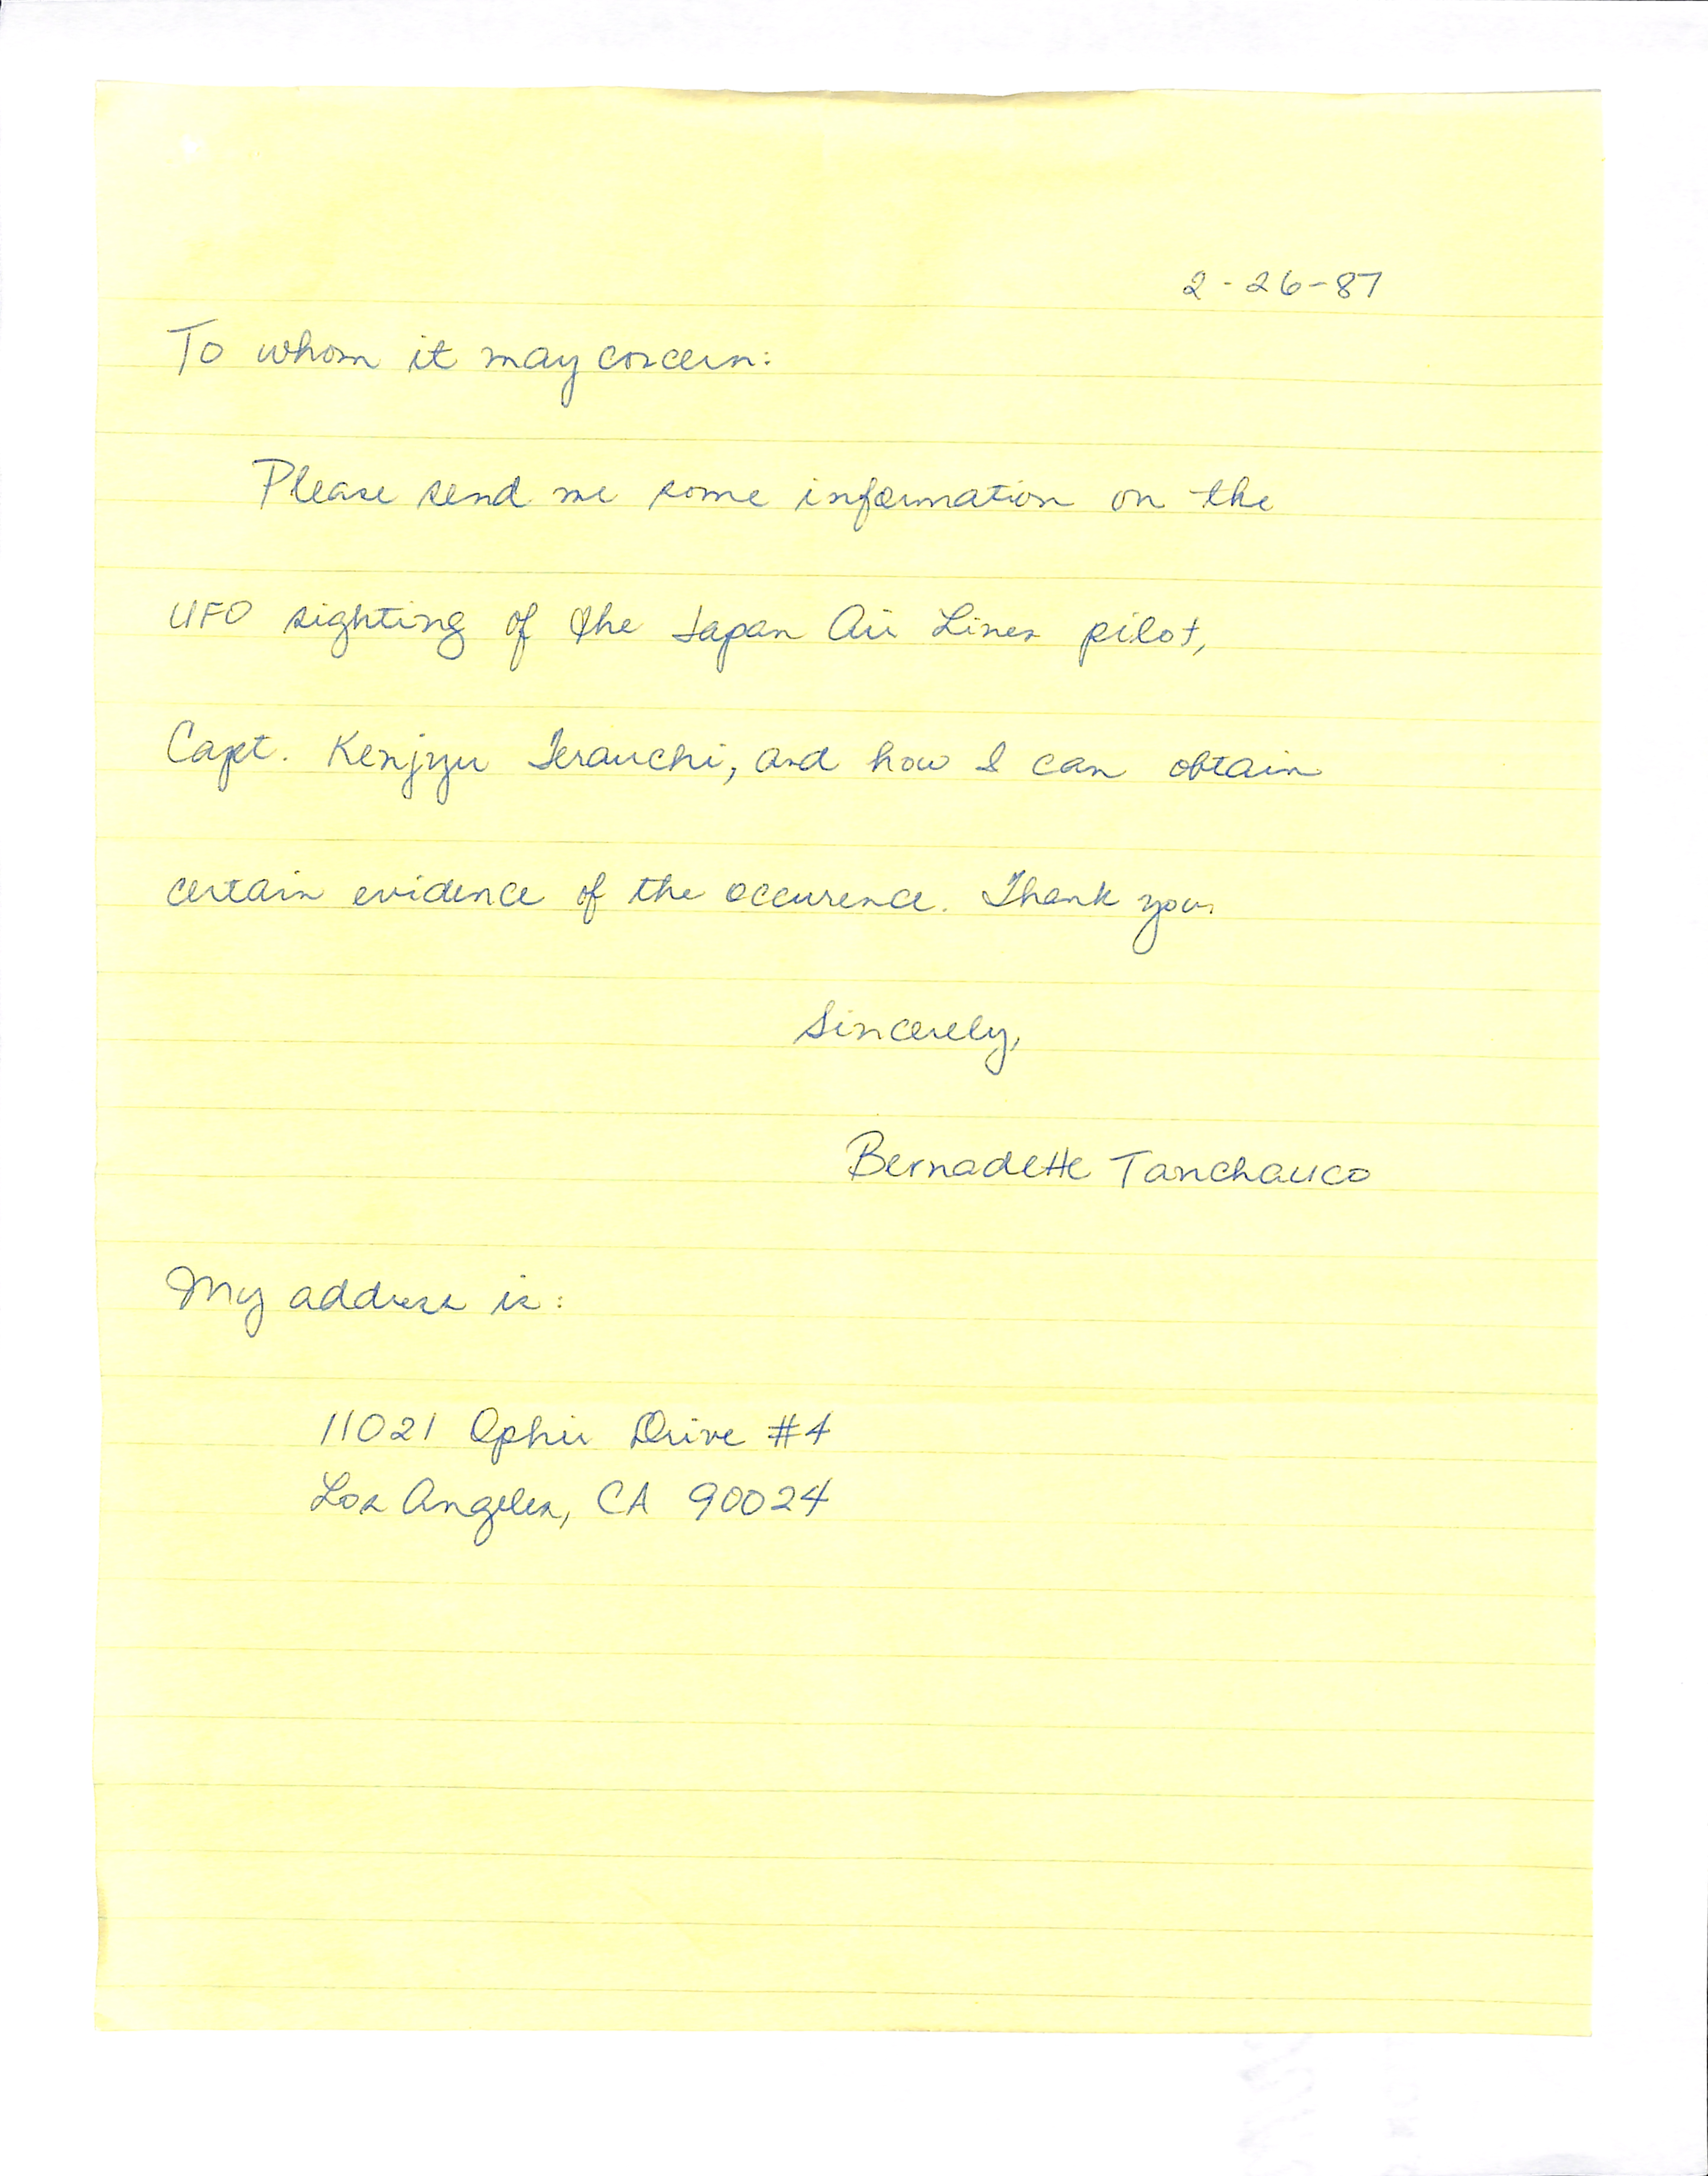 2-26-87
To whom it may concern:
Please send me some information on the
UFO sighting of the Japan Air Lines pilot,
Capt. Kenjyu Terauchi, and how I can obtain
certain evidence of the occurence. Thank you.
Sincerely,
Bernadette Tanchauco
My address is:
11021 Ophir Drive #4
Los Angeles, CA 90024